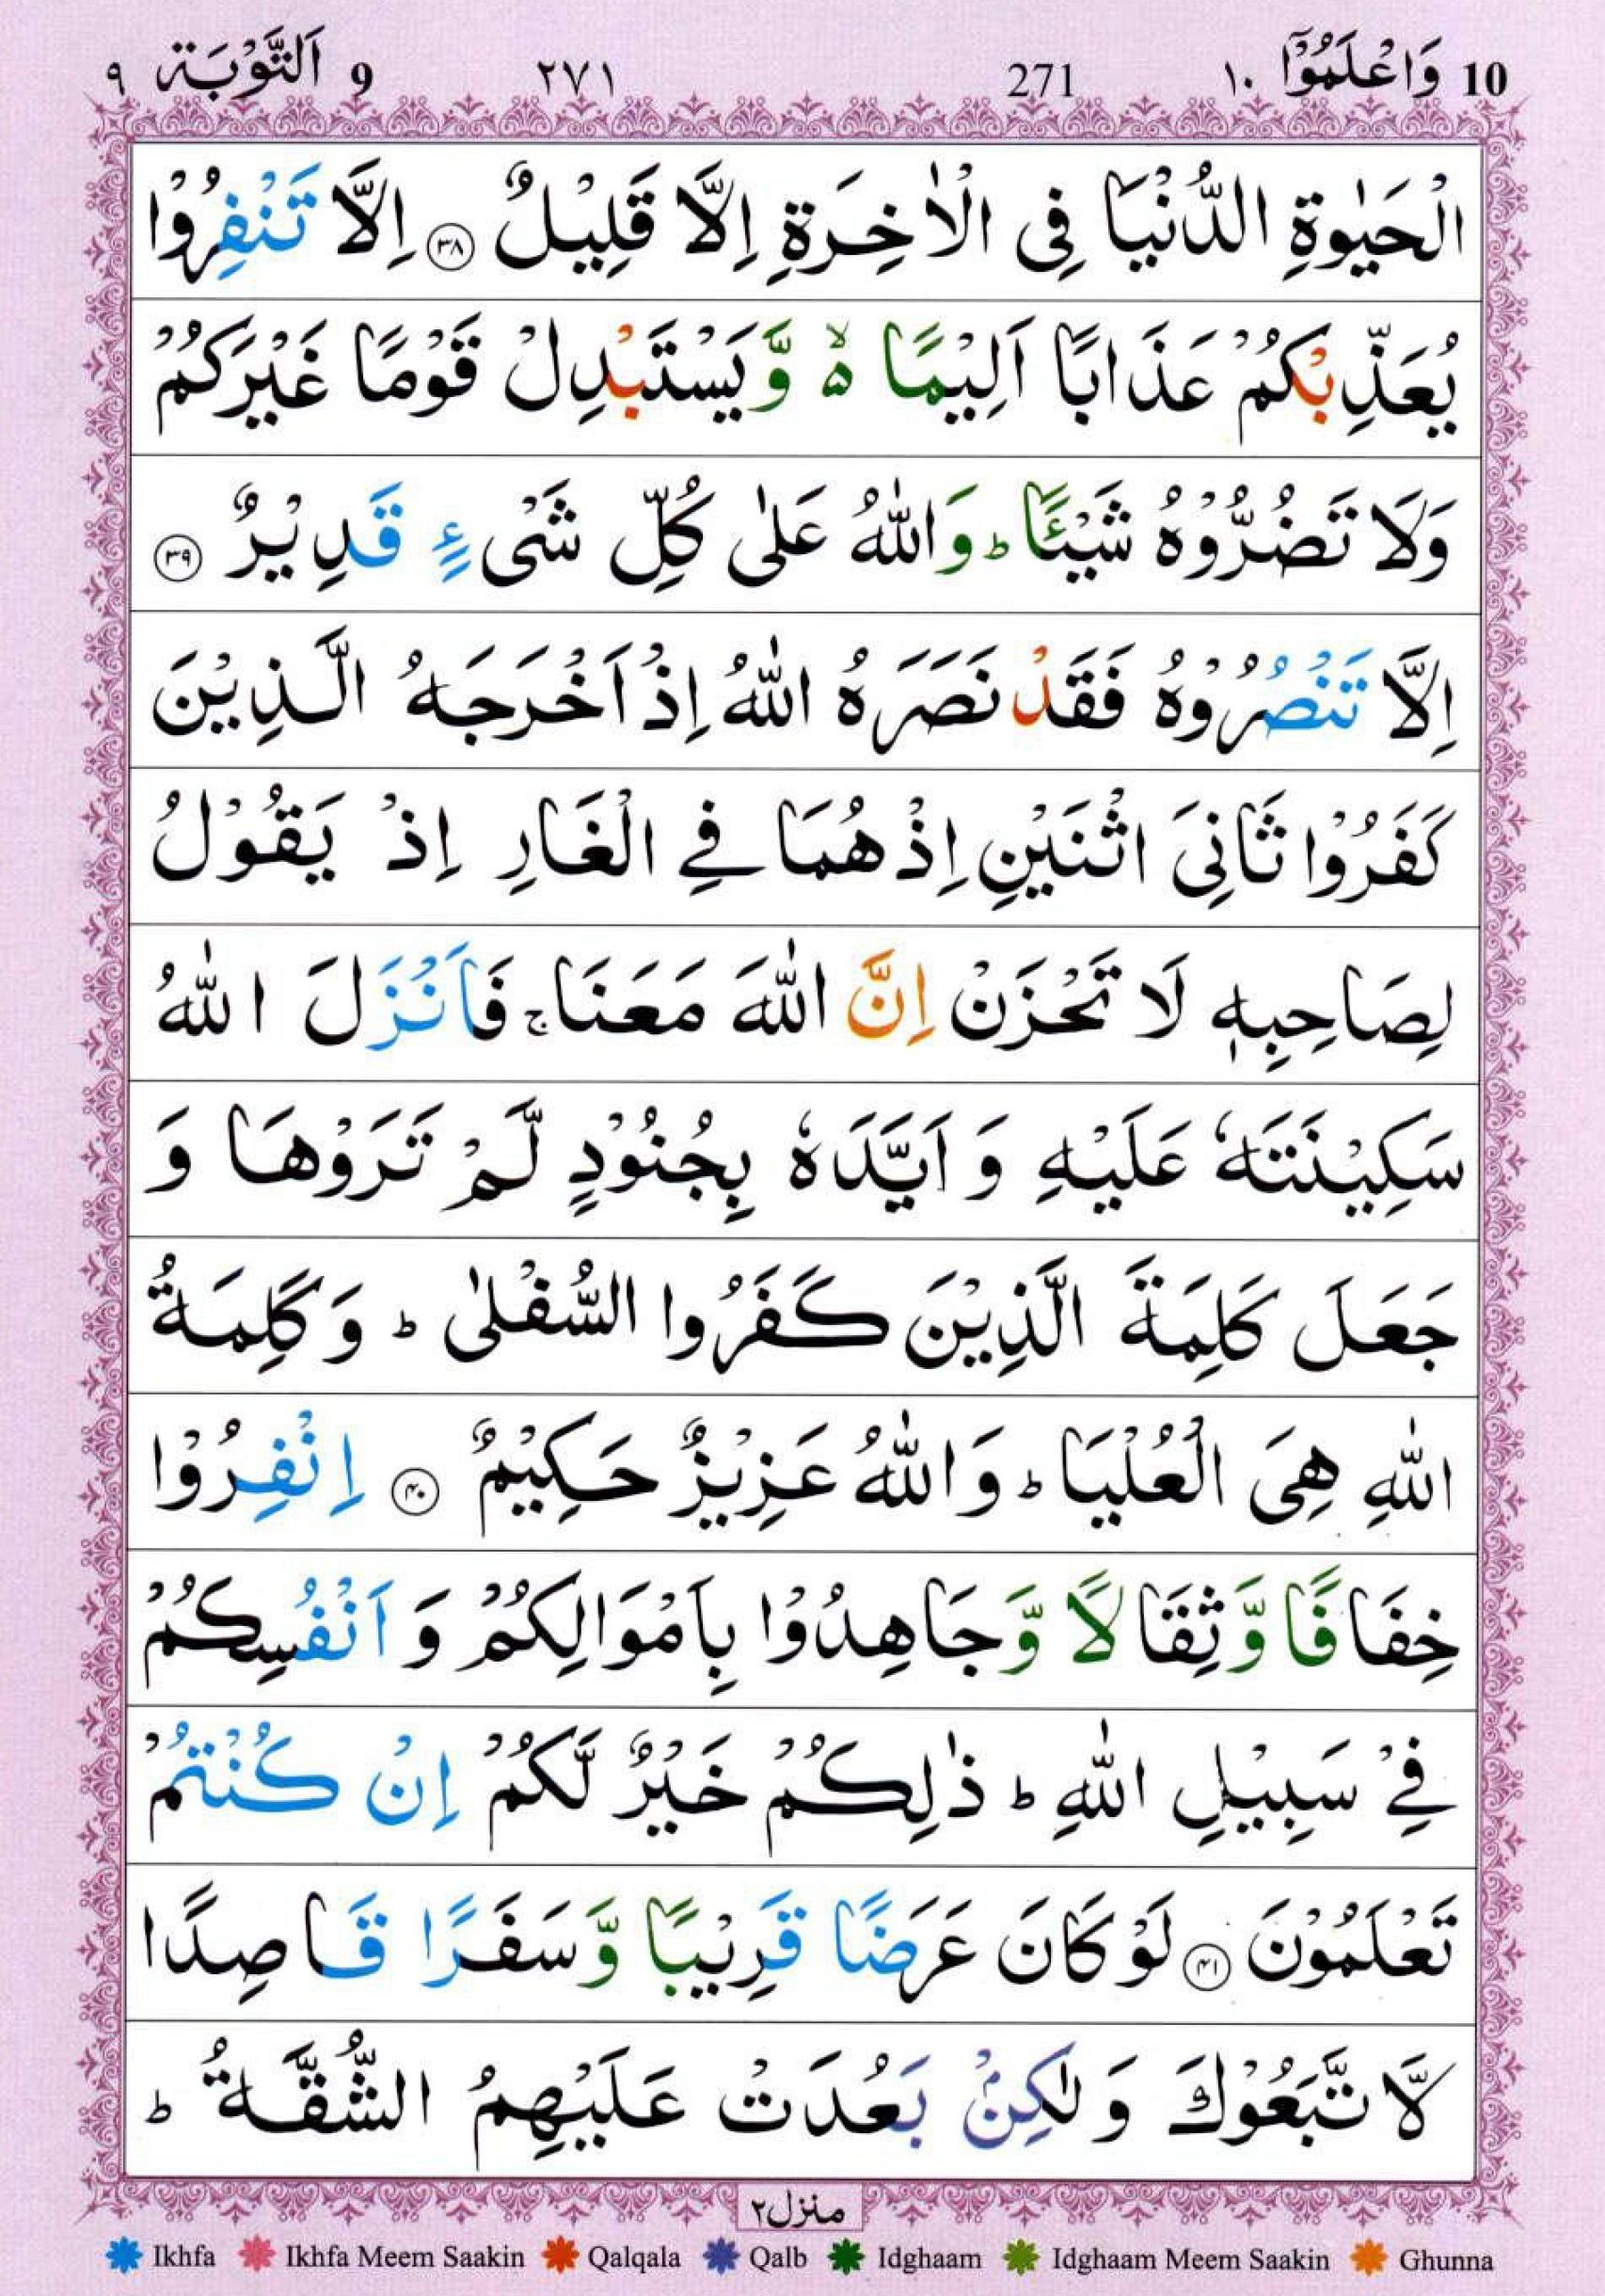 10 وَاعْلَمُوْۤا ۱۰ 271 ۲۷۱ 9 اَلتَّوْبَة ۹
الْحَيٰوةِ الدُّنْيَا فِى الْاٰخِرَةِ اِلَّا قَلِيْلٌ ۝۳۸ اِلَّا تَنْفِرُوْا
يُعَذِّبْكُمْ عَذَابًا اَلِيْمًا ۵ۙ وَّيَسْتَبْدِلْ قَوْمًا غَيْرَكُمْ
وَلَا تَضُرُّوْهُ شَيْئًا ؕ وَاللّٰهُ عَلٰى كُلِّ شَىْءٍ قَدِيْرٌ ۝۳۹
اِلَّا تَنْصُرُوْهُ فَقَدْ نَصَرَهُ اللّٰهُ اِذْ اَخْرَجَهُ الَّذِيْنَ
كَفَرُوْا ثَانِىَ اثْنَيْنِ اِذْ هُمَا فِى الْغَارِ اِذْ يَقُوْلُ
لِصَاحِبِهٖ لَا تَحْزَنْ اِنَّ اللّٰهَ مَعَنَا ۚ فَاَنْزَلَ اللّٰهُ
سَكِيْنَتَهٗ عَلَيْهِ وَ اَيَّدَهٗ بِجُنُوْدٍ لَّمْ تَرَوْهَا وَ
جَعَلَ كَلِمَةَ الَّذِيْنَ كَفَرُوا السُّفْلٰى ؕ وَ كَلِمَةُ
اللّٰهِ هِىَ الْعُلْيَا ؕ وَ اللّٰهُ عَزِيْزٌ حَكِيْمٌ ۝۴۰ اِنْفِرُوْا
خِفَافًا وَّ ثِقَالًا وَّ جَاهِدُوْا بِاَمْوَالِكُمْ وَ اَنْفُسِكُمْ
فِىْ سَبِيْلِ اللّٰهِ ؕ ذٰلِكُمْ خَيْرٌ لَّكُمْ اِنْ كُنْتُمْ
تَعْلَمُوْنَ ۝۴۱ لَوْ كَانَ عَرَضًا قَرِيْبًا وَّ سَفَرًا قَاصِدًا
لَّا تَّبَعُوْكَ وَ لٰكِنْۢ بَعُدَتْ عَلَيْهِمُ الشُّقَّةُ ؕ
منزل۲
Ikhfa Ikhfa Meem Saakin Qalqala Qalb Idghaam Idghaam Meem Saakin Ghunna